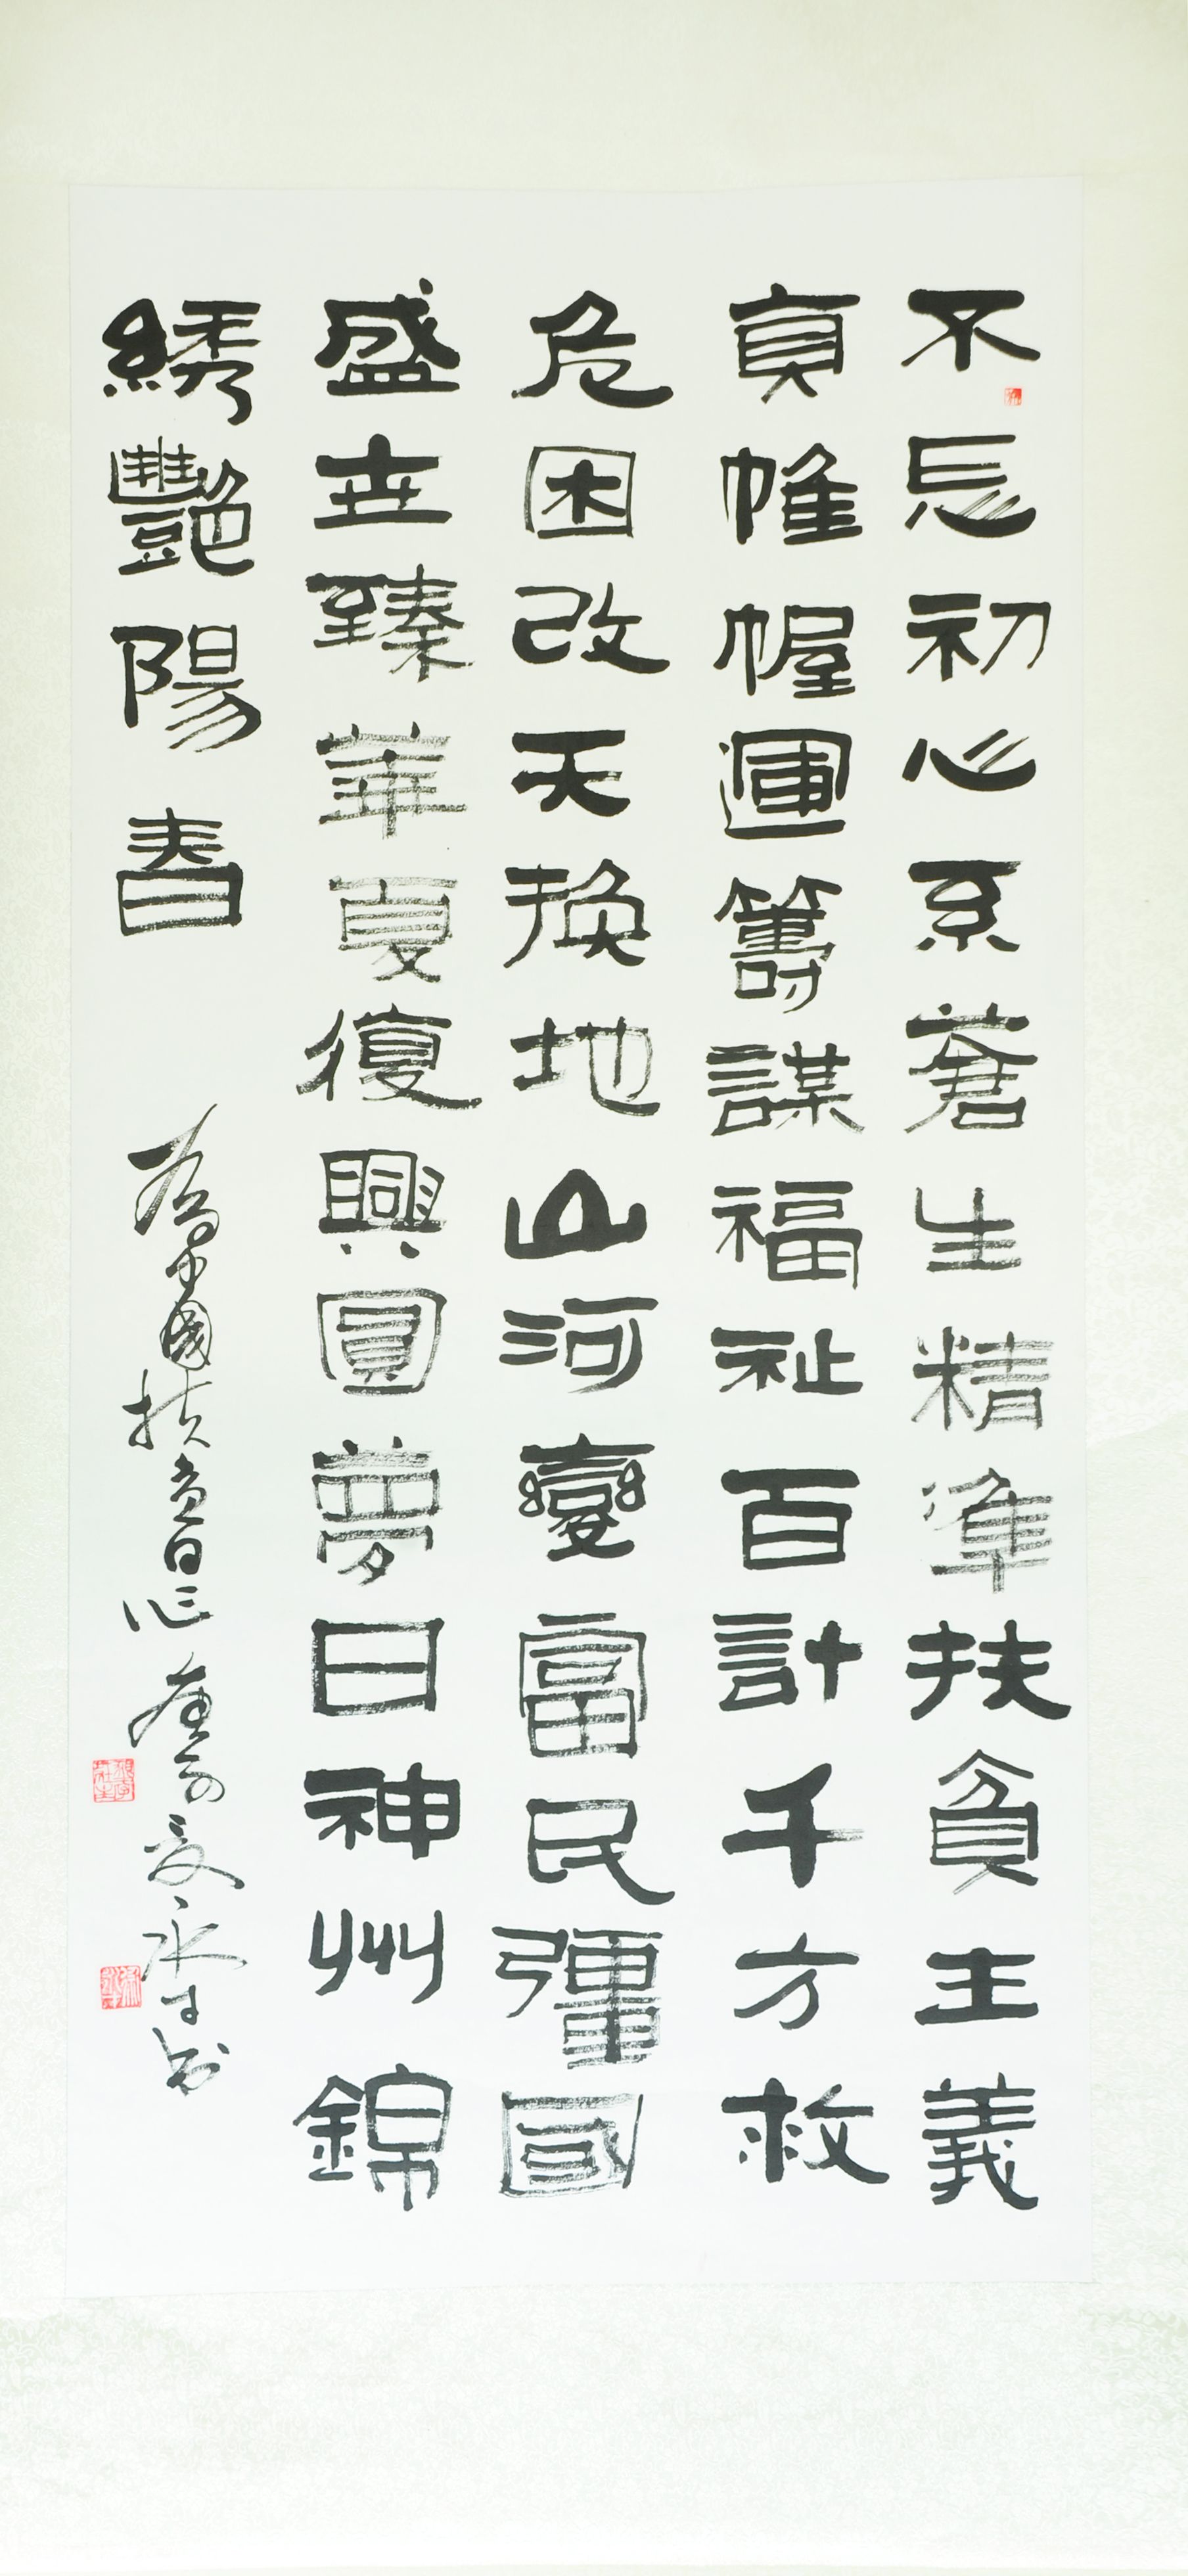 不忘初心系蒼生精準扶貧主義
真帷幄運籌謀福祉百計千方救
危困改天換地山河變富民彊國
盛世臻華夏復興圓夢日神州錦
綉艷陽春
為中國扶貧日作 永